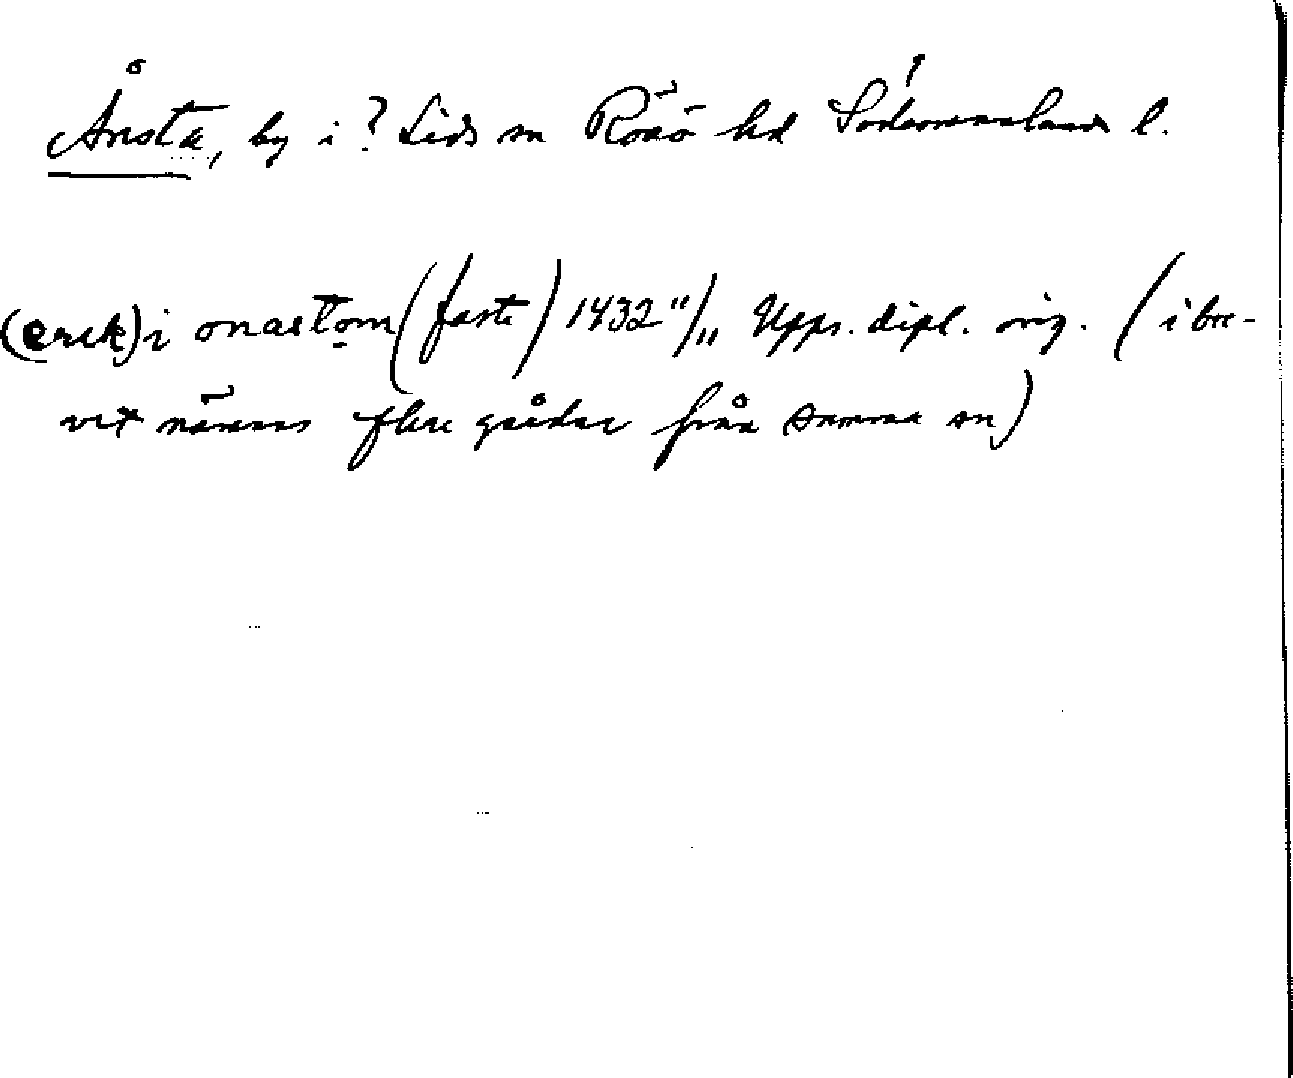 Ånsta, by i? Lids sn Rönö hd Södermanlands l.
(erek) i onastom (faste) 1432 11/11 Upps. dipl. orig. (i bre-
vet nämnas flere gårdar från samma sn)